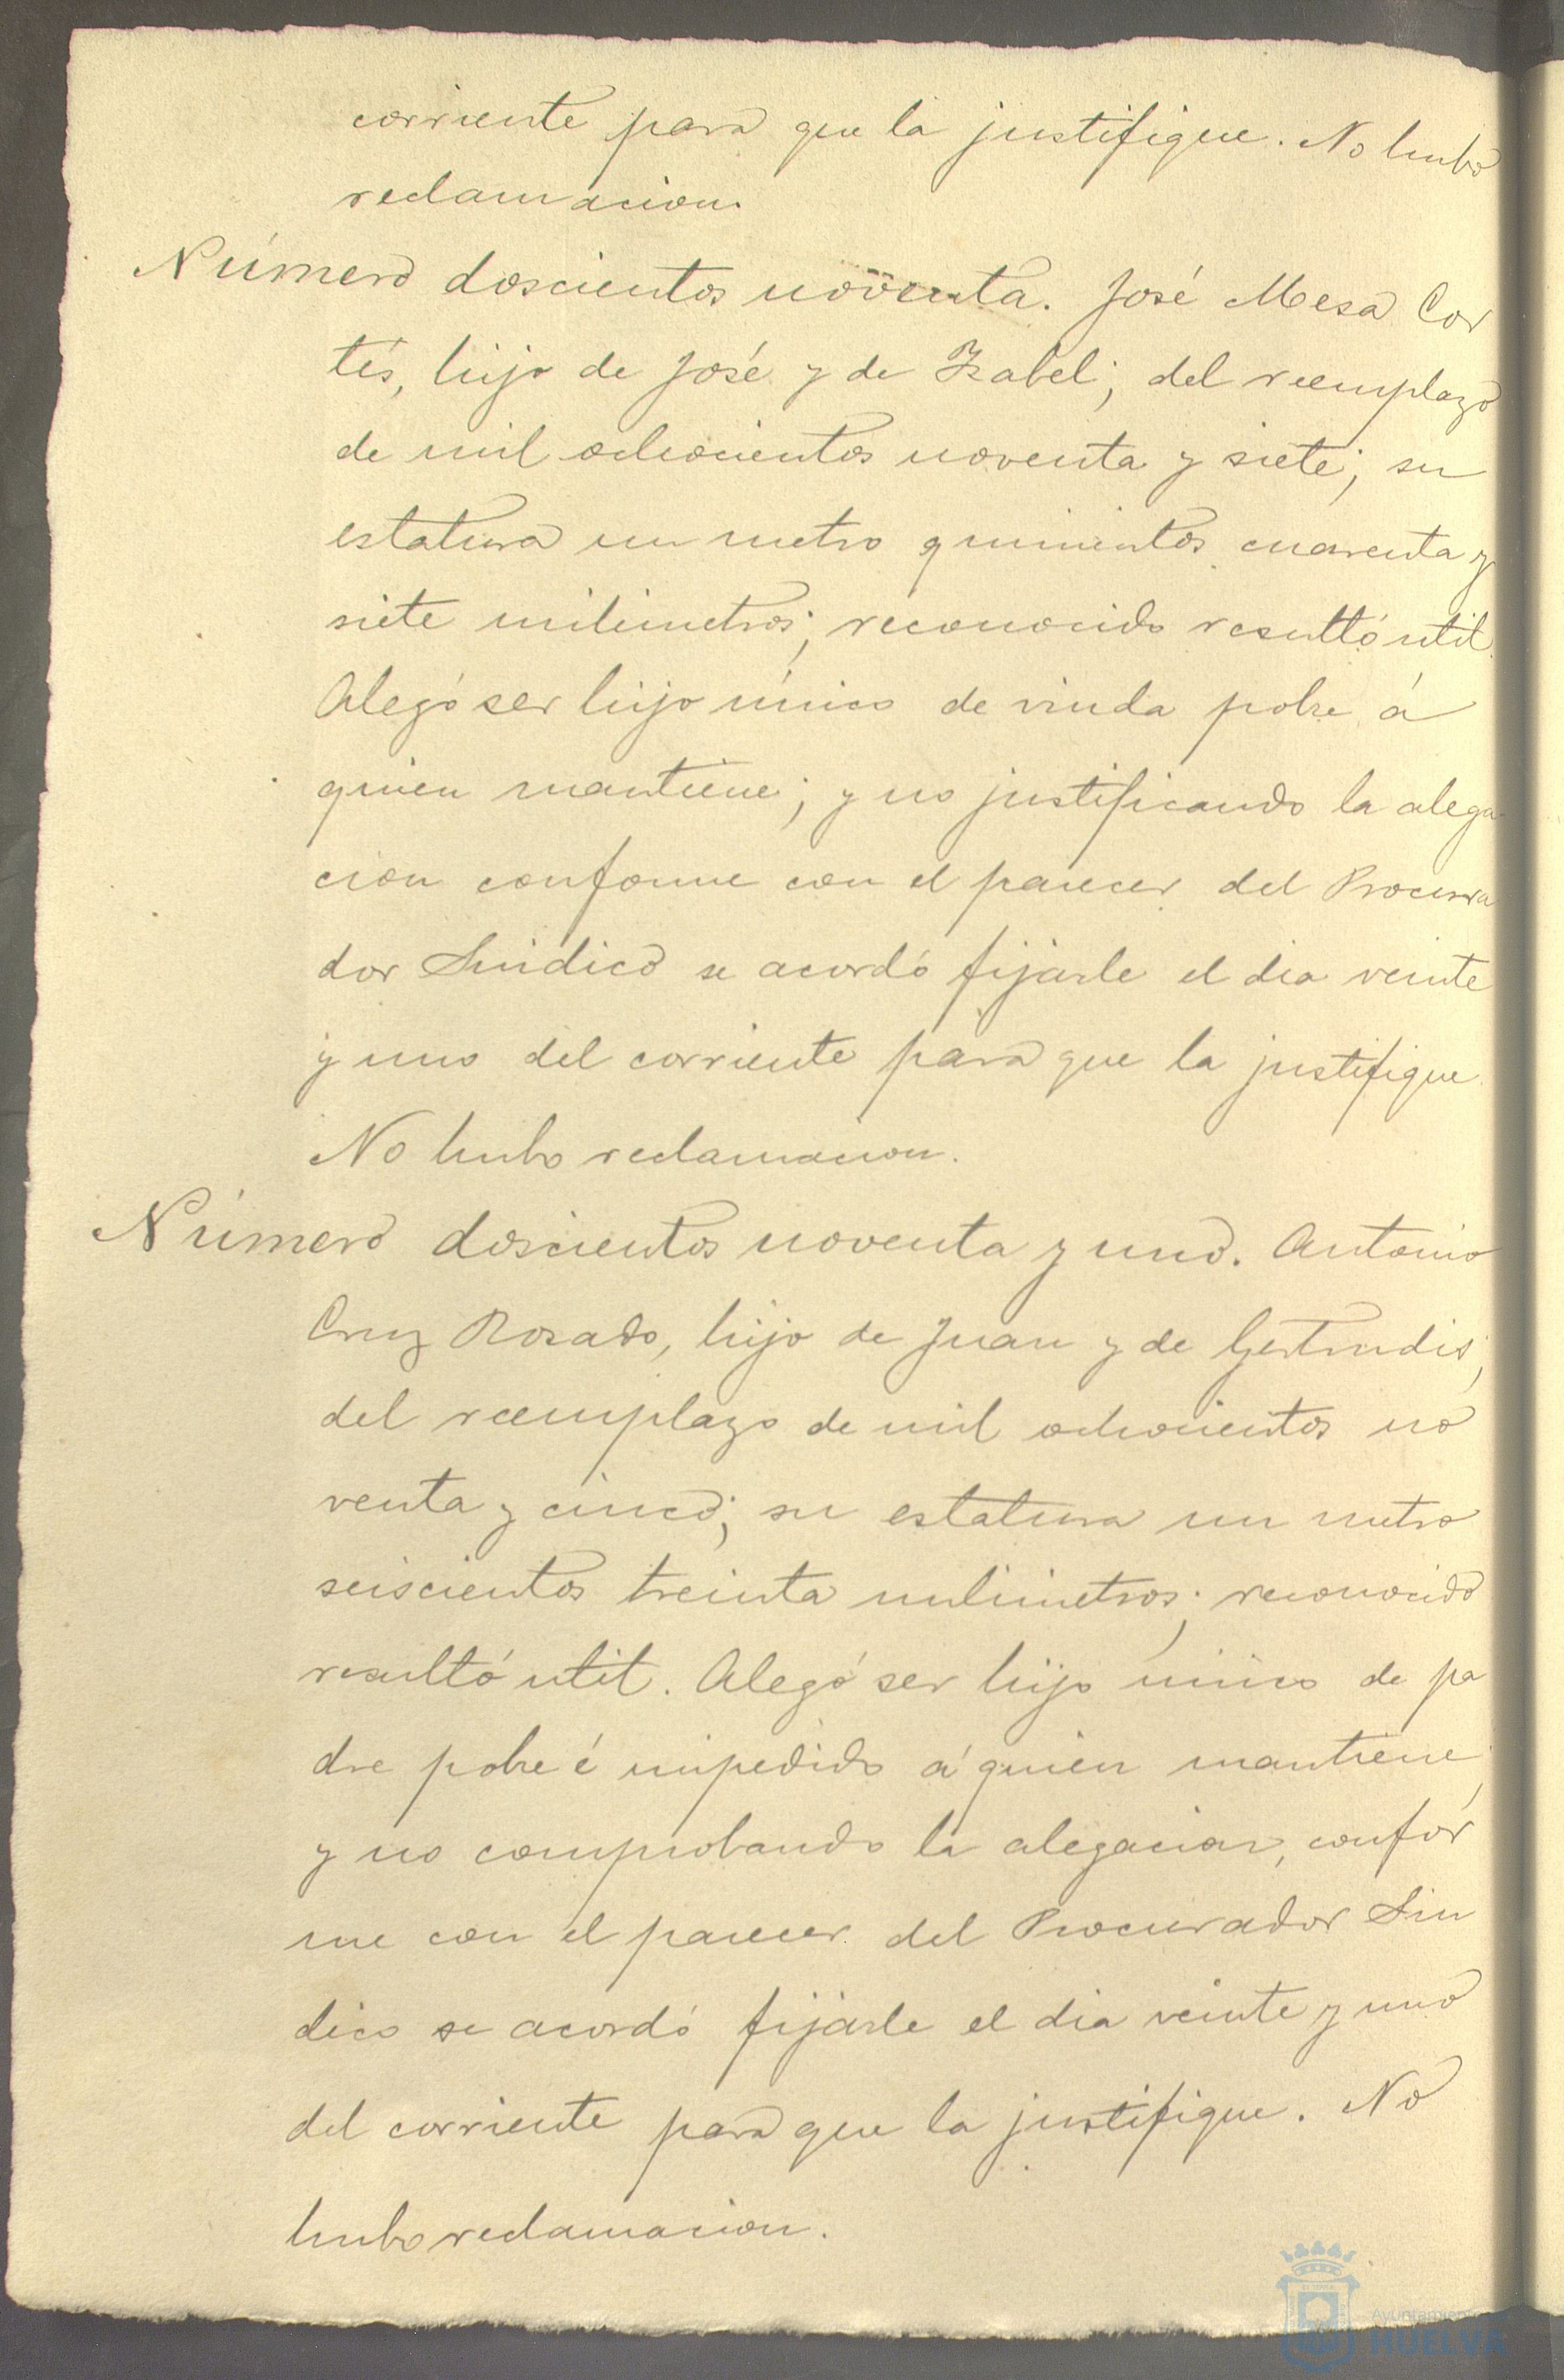 corriente para que la justifique. No hubo
reclamacion.
Número doscientos noventa. José Mesa Cor
tés, hijo de José y de Isabel; del reemplazo
de mil ochocientos noventa y siete; su
estatura un metro quinientos cuarenta y
siete milimetros; reconocido resultó util.
Alegó ser hijo único de viuda pobre á
quien mantiene; y no justificando la alega
cion conforme con el parecer del Procura
dor Sindico se acordó fijarle el dia veinte
y uno del corriente para que la justifique.
No hubo reclamacion.
Número doscientos noventa y uno. Antonio
Cruz Rosado, hijo de Juan y de Gertrudis;
del reemplazo de mil ochocientos no
venta y cinco; su estatura un metro
seiscientos treinta milimetros; reconocido
resultó util. Alegó ser hijo único de pa
dre pobre é impedido á quien mantiene;
y no comprobando la alegacion, confor
me con el parecer del Procurador Sin
dico se acordó fijarle el dia veinte y uno
del corriente para que la justifique. No
hubo reclamacion.
Ayuntamiento
HUELVA